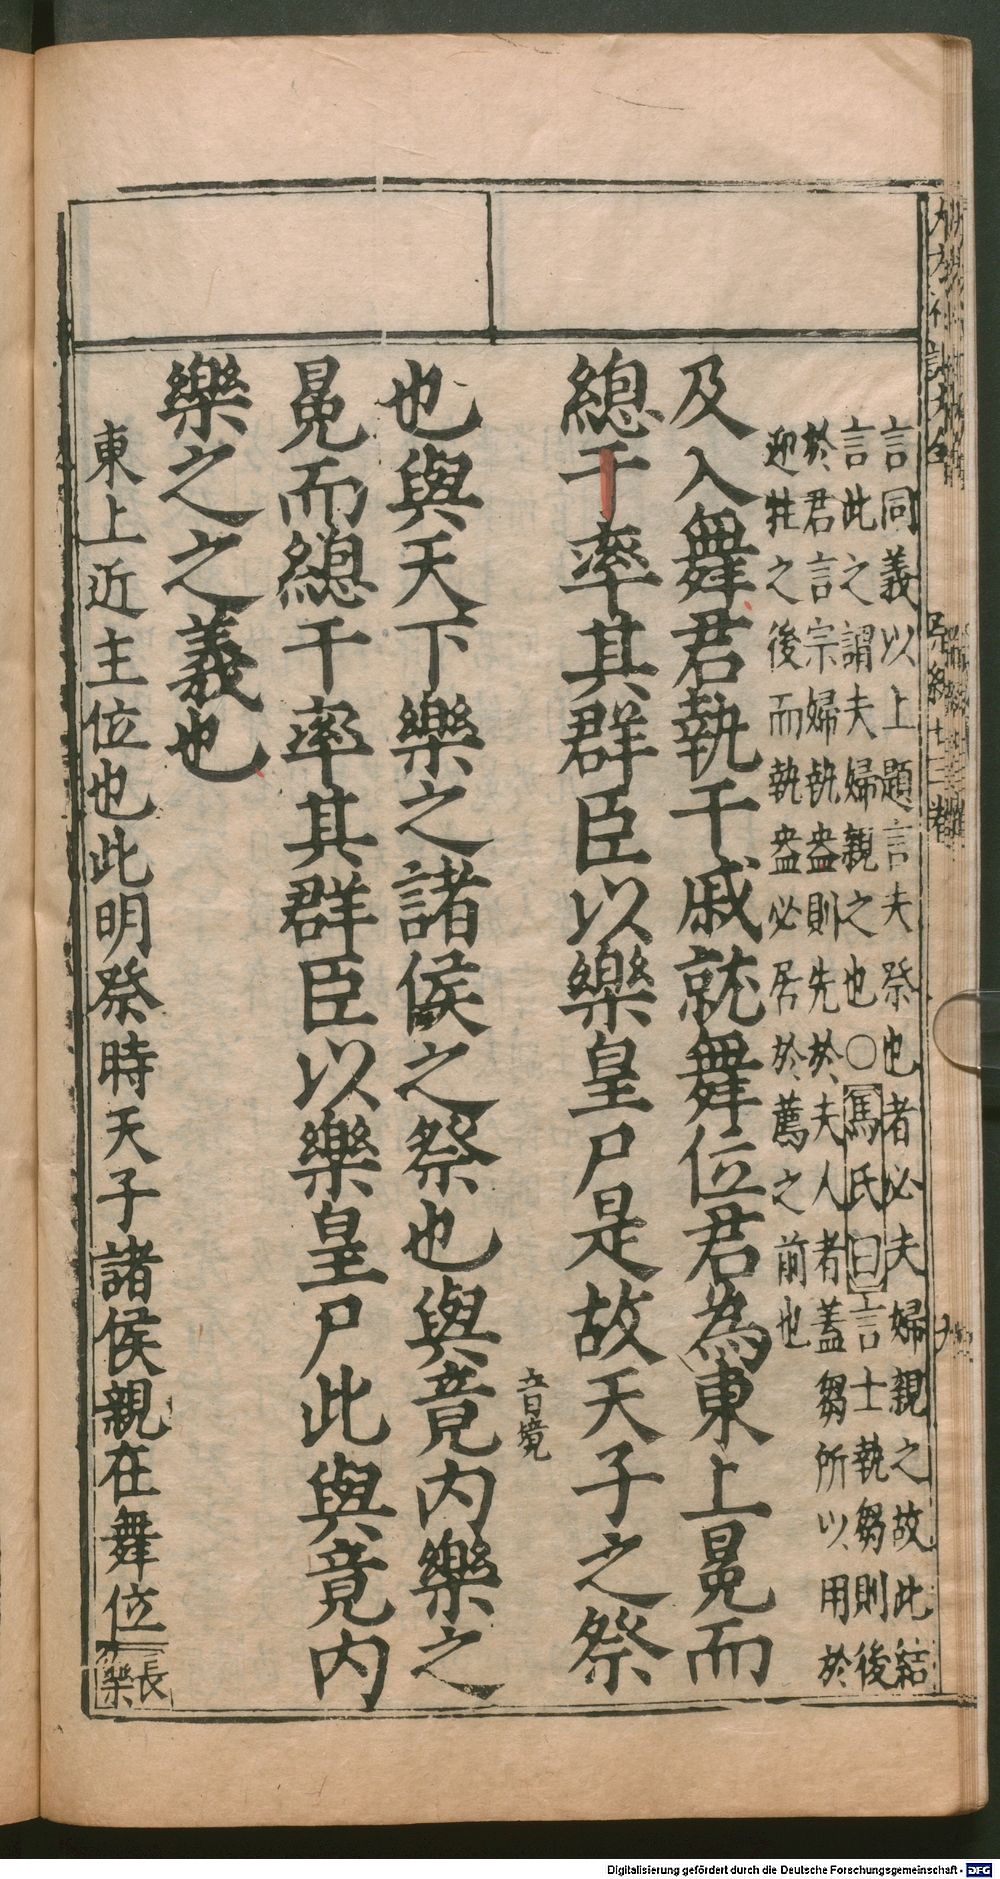 言同義以上題言夫祭也者必夫婦親之故此結
言此之謂夫婦親之也○馮氏曰言士執芻則後
於君言宗婦執盎則先於夫人者蓋芻所以用於
迎牲之後而執盎必居於薦之前也
及入舞君執干戚就舞位君為東上冕而
總干率其群臣以樂皇尸是故天子之祭
音境
也與天下樂之諸侯之祭也與竟内樂之
冕而總干率其群臣以樂皇尸此與竟内
樂之之義也
東上近主位也此明祭時天子諸侯親在舞位
長樂
Digitalisierung gefördert durch die Deutsche Forschungsgemeinschaft - DFG